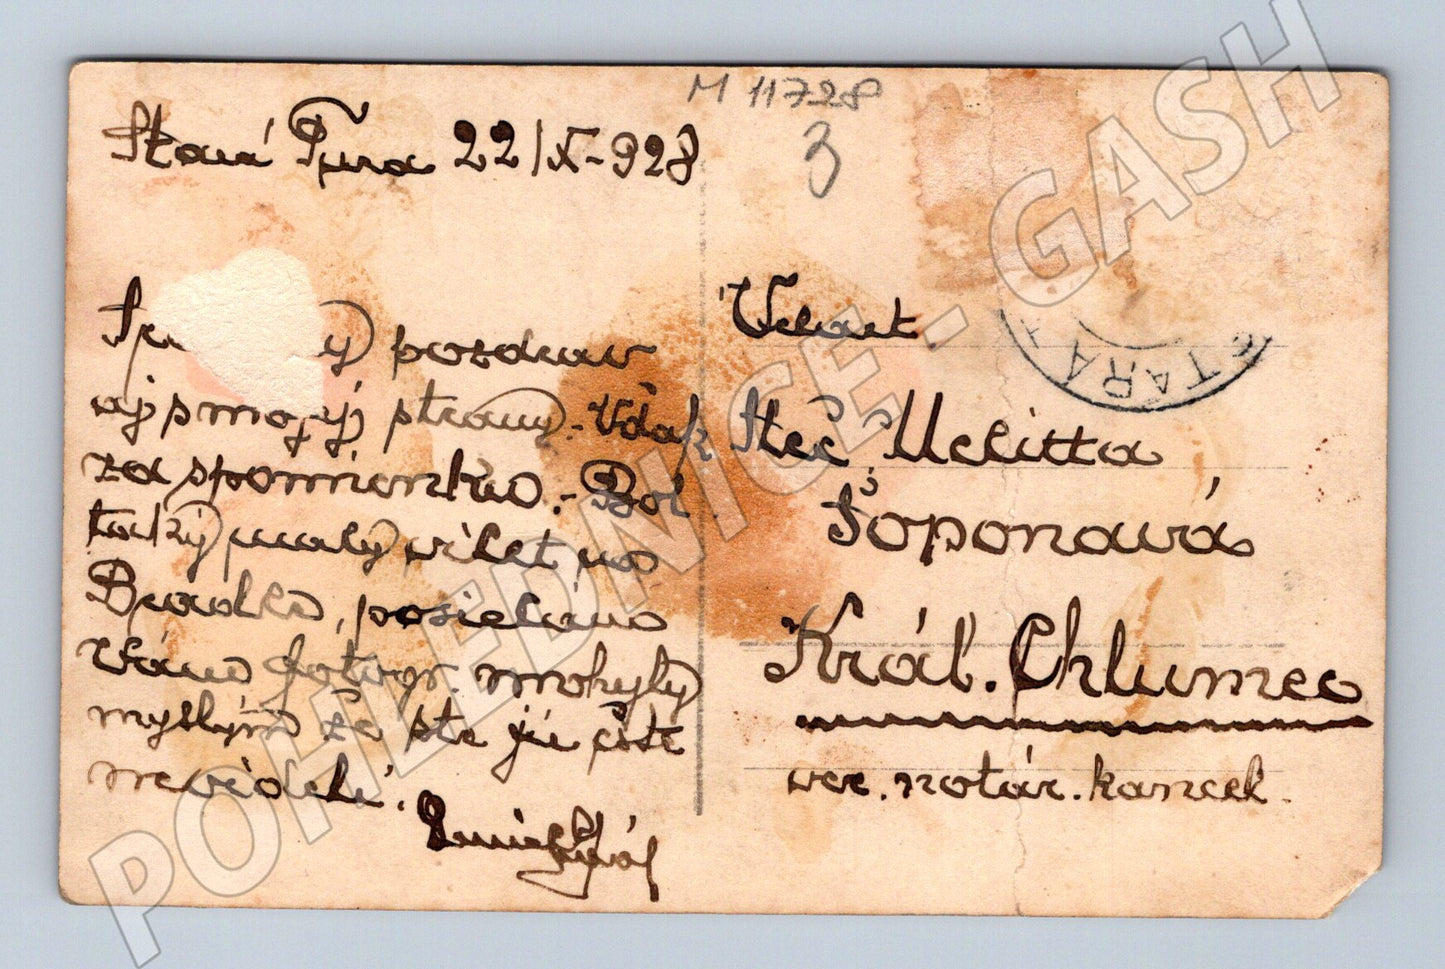 M 11728
3
Stará Tura 22/X-928
pozdrav
aj s mojej strany. Vďak
za spomienku.- Bol
taký malý výlet na
Bradlo, posielame
Vám fotogr. mohyly
myslým že ste ju ešte
nevideli.
Velact.
Slč. Melitta
Šoponavá
Král. Chlumec
ver. notár. kancel.
STARÁ
POHLEDNICE - GASH